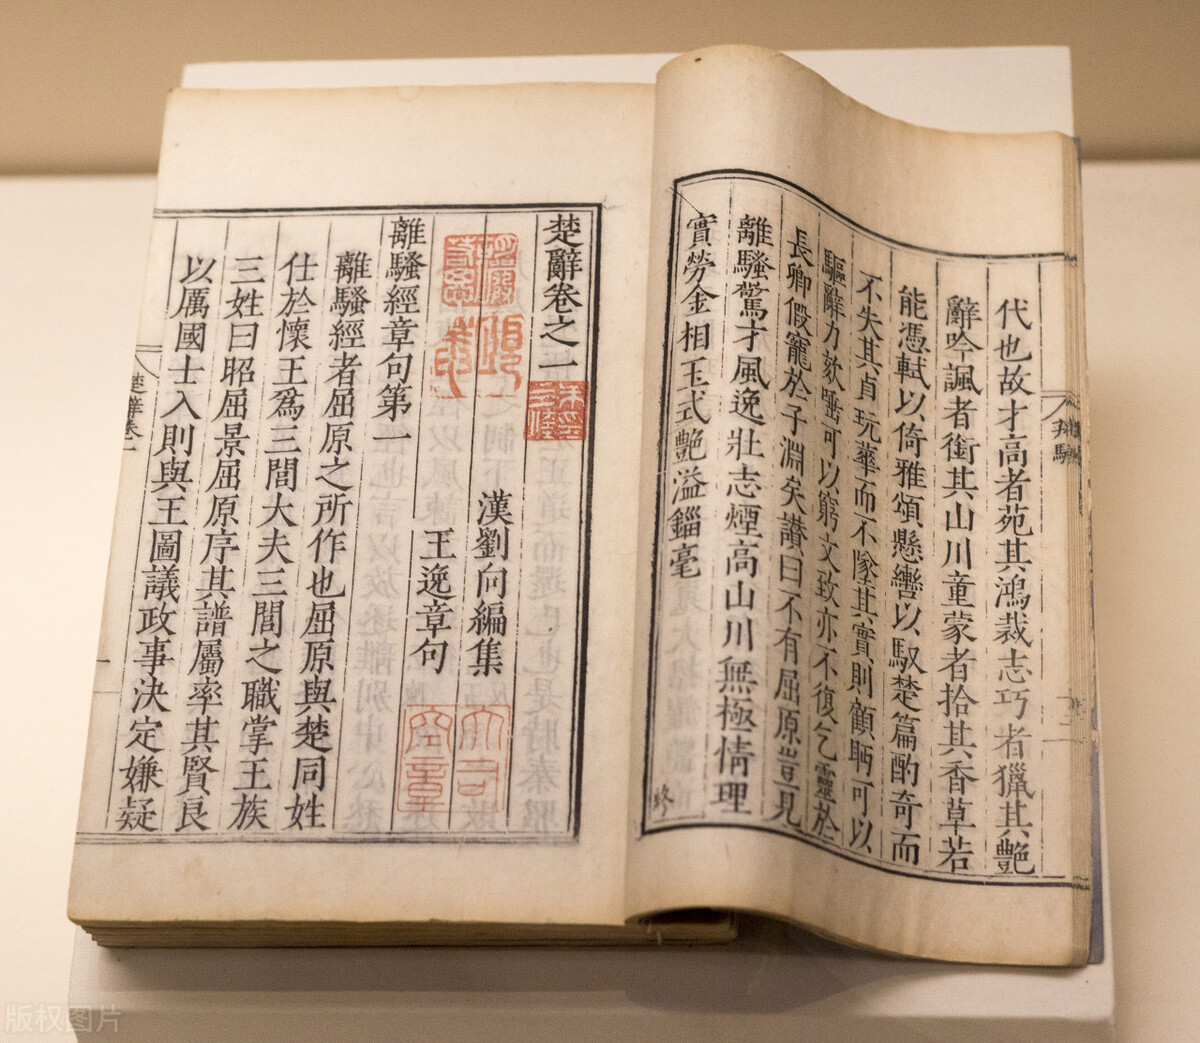 代也故才高者苑其鴻裁志巧者獵其艷
辭吟諷者銜其山川童蒙者拾其香草若
能憑軾以倚雅頌懸轡以馭楚篇酌奇而
不失其貞玩華而不墜其實則顧眄可以
驅辭力欬唾可以窮文致亦不復乞靈於
長卿假寵於子淵矣讃曰不有屈原豈見
離騷驚才風逸壯志煙高山川無極情理
實勞金相玉式艷溢錙毫
終
楚辭卷之一
漢劉向編集
王逸章句
離騷經章句第一
離騷經者屈原之所作也屈原與楚同姓
仕於懷王為三閭大夫三閭之職掌王族
三姓曰昭屈景屈原序其譜屬率其賢良
以厲國士入則與王圖議政事決定嫌疑
楚辭卷一
一
版权图片